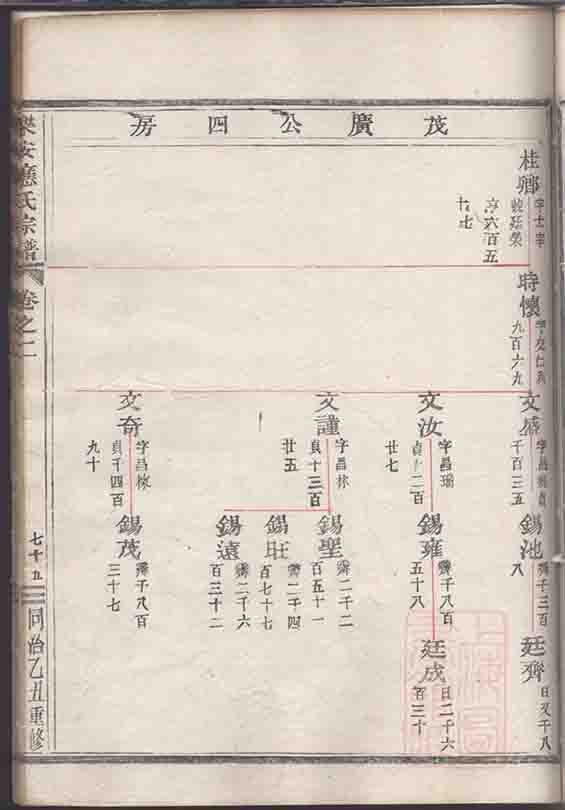 茂廣公四房
桂鄉
字士宇
號廷榮
序六百五
十七
時懷
九百六九
文盛
千百三五
錫池
霽千三百
八
廷齊
文汝
字昌瑞
廿七
錫雍
霽千八百
五十八
廷成
日二千六
百三十
文謹
字昌林
貞十三百
廿五
錫聖
霽二千二
百五十一
錫旺
霽二千四
百七十七
錫遠
霽二千六
百三十二
文奇
字昌椽
貞千四百
九十
錫茂
霽千八百
三十七
安應氏宗譜
卷之二
七十五
同治乙丑重修